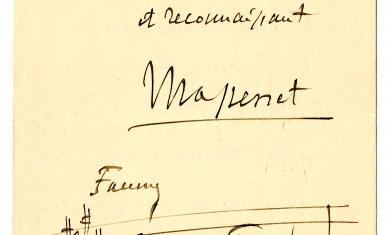 et reconnaissant
Massenet